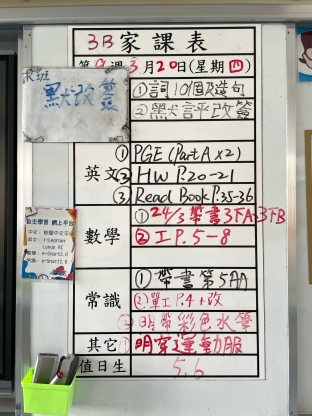 3B家課表
第9週3月20日(星期四)
R班
默改簽
①詞10個及造句
②默書評改簽
英文
①PGE (Part A x2)
②HW P.20-21
③Read Book P.35-36
自主學習 網上平台
數學
①24/3 帶書3FA-3FB
②工P.5-8
常識
①帶書第5AA
②單工P.4+改
③明帶彩色水筆
其它
①明穿運動服
值日生
5,6